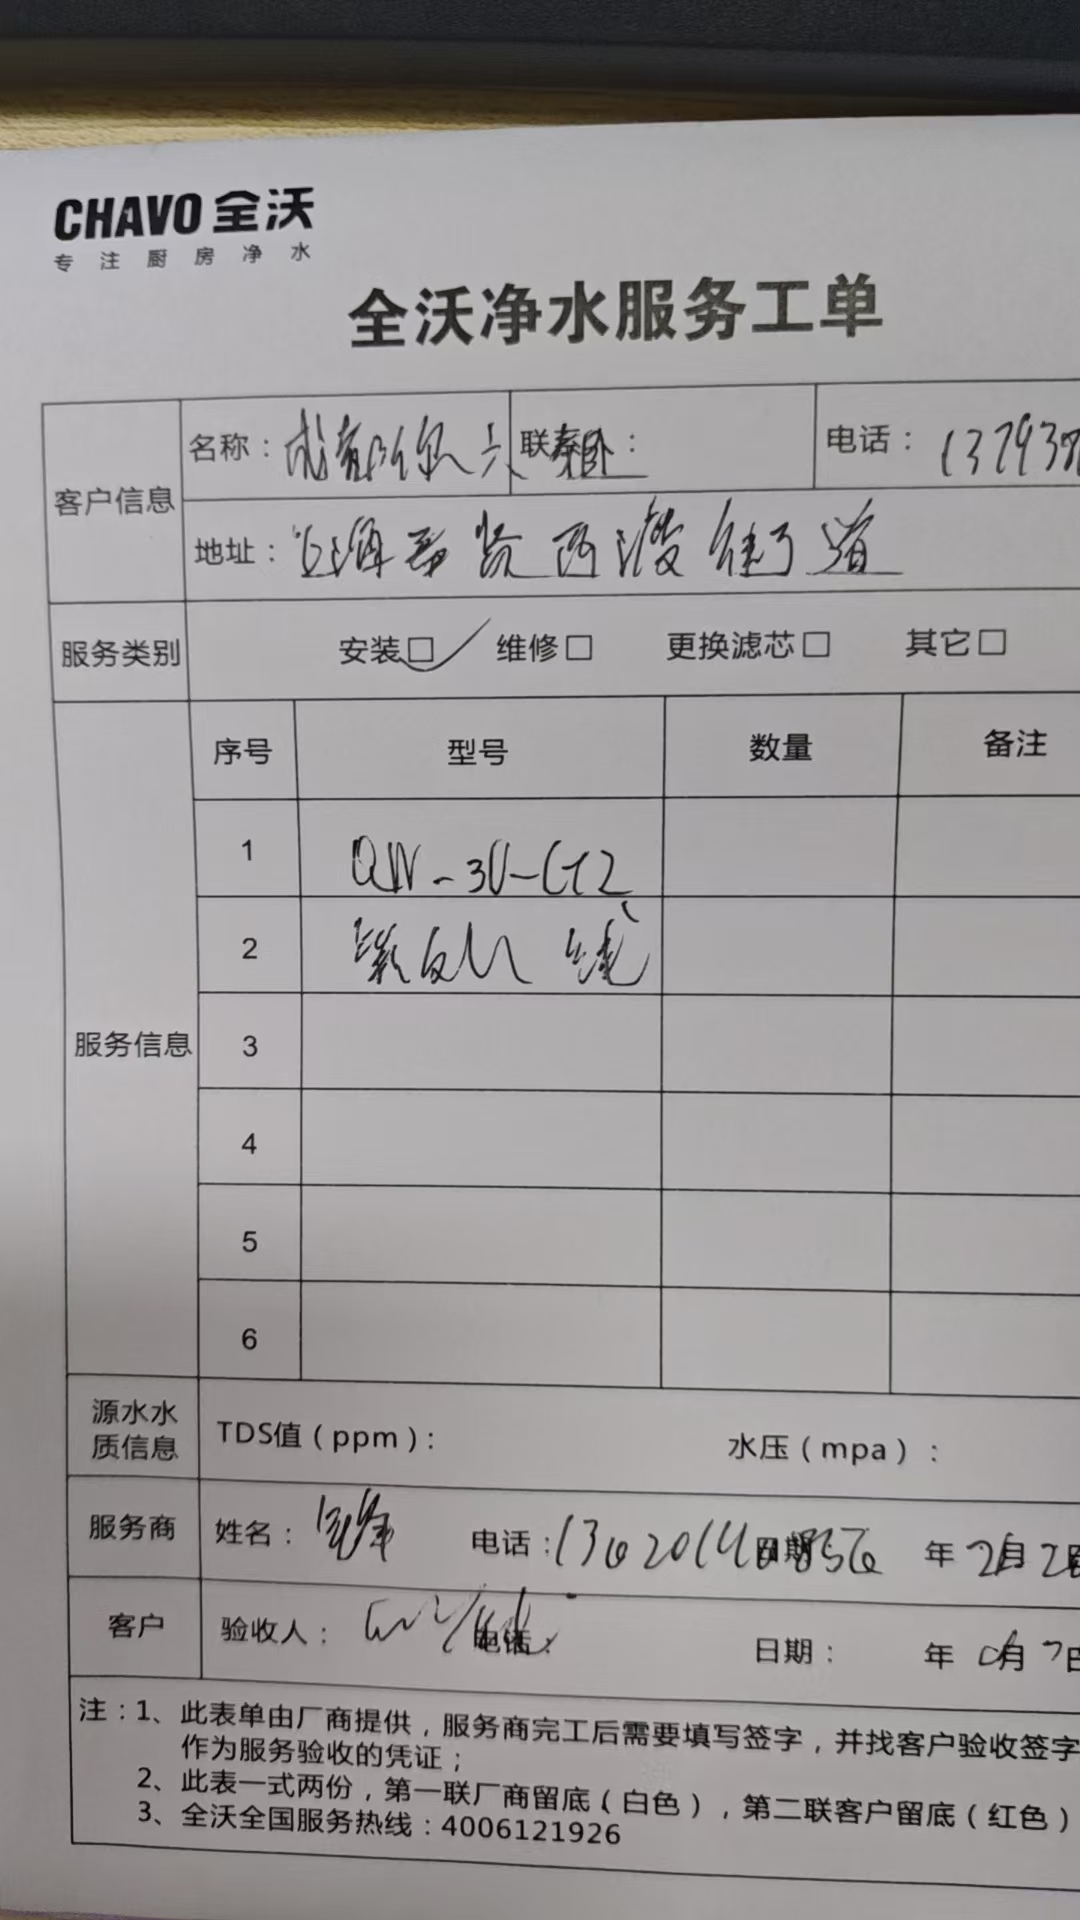 CHAVO 全沃
专注厨房净水
全沃净水服务工单
客户信息
名称：成都
联系人：
电话：137937
地址：上海奉贤西渡街道
服务类别 安装□ 维修□ 更换滤芯□ 其它□
服务信息
序号 型号 数量 备注
1 QW-30-CT2
2
3
4
5
6
源水水质信息 TDS值（ppm）： 水压（mpa）：
服务商 姓名： 电话： 日期： 年 2月2日
客户 验收人： 电话： 日期： 年 月 日
注：1、此表单由厂商提供，服务商完工后需要填写签字，并找客户验收签字
作为服务验收的凭证；
2、此表一式两份，第一联厂商留底（白色），第二联客户留底（红色）
3、全沃全国服务热线：4006121926